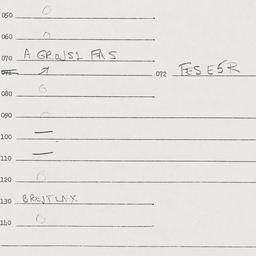 050
060
070 A GROJS1 FAS
071
072 FES E5R
080
090
100
110
120
130 BREJTLAX
140